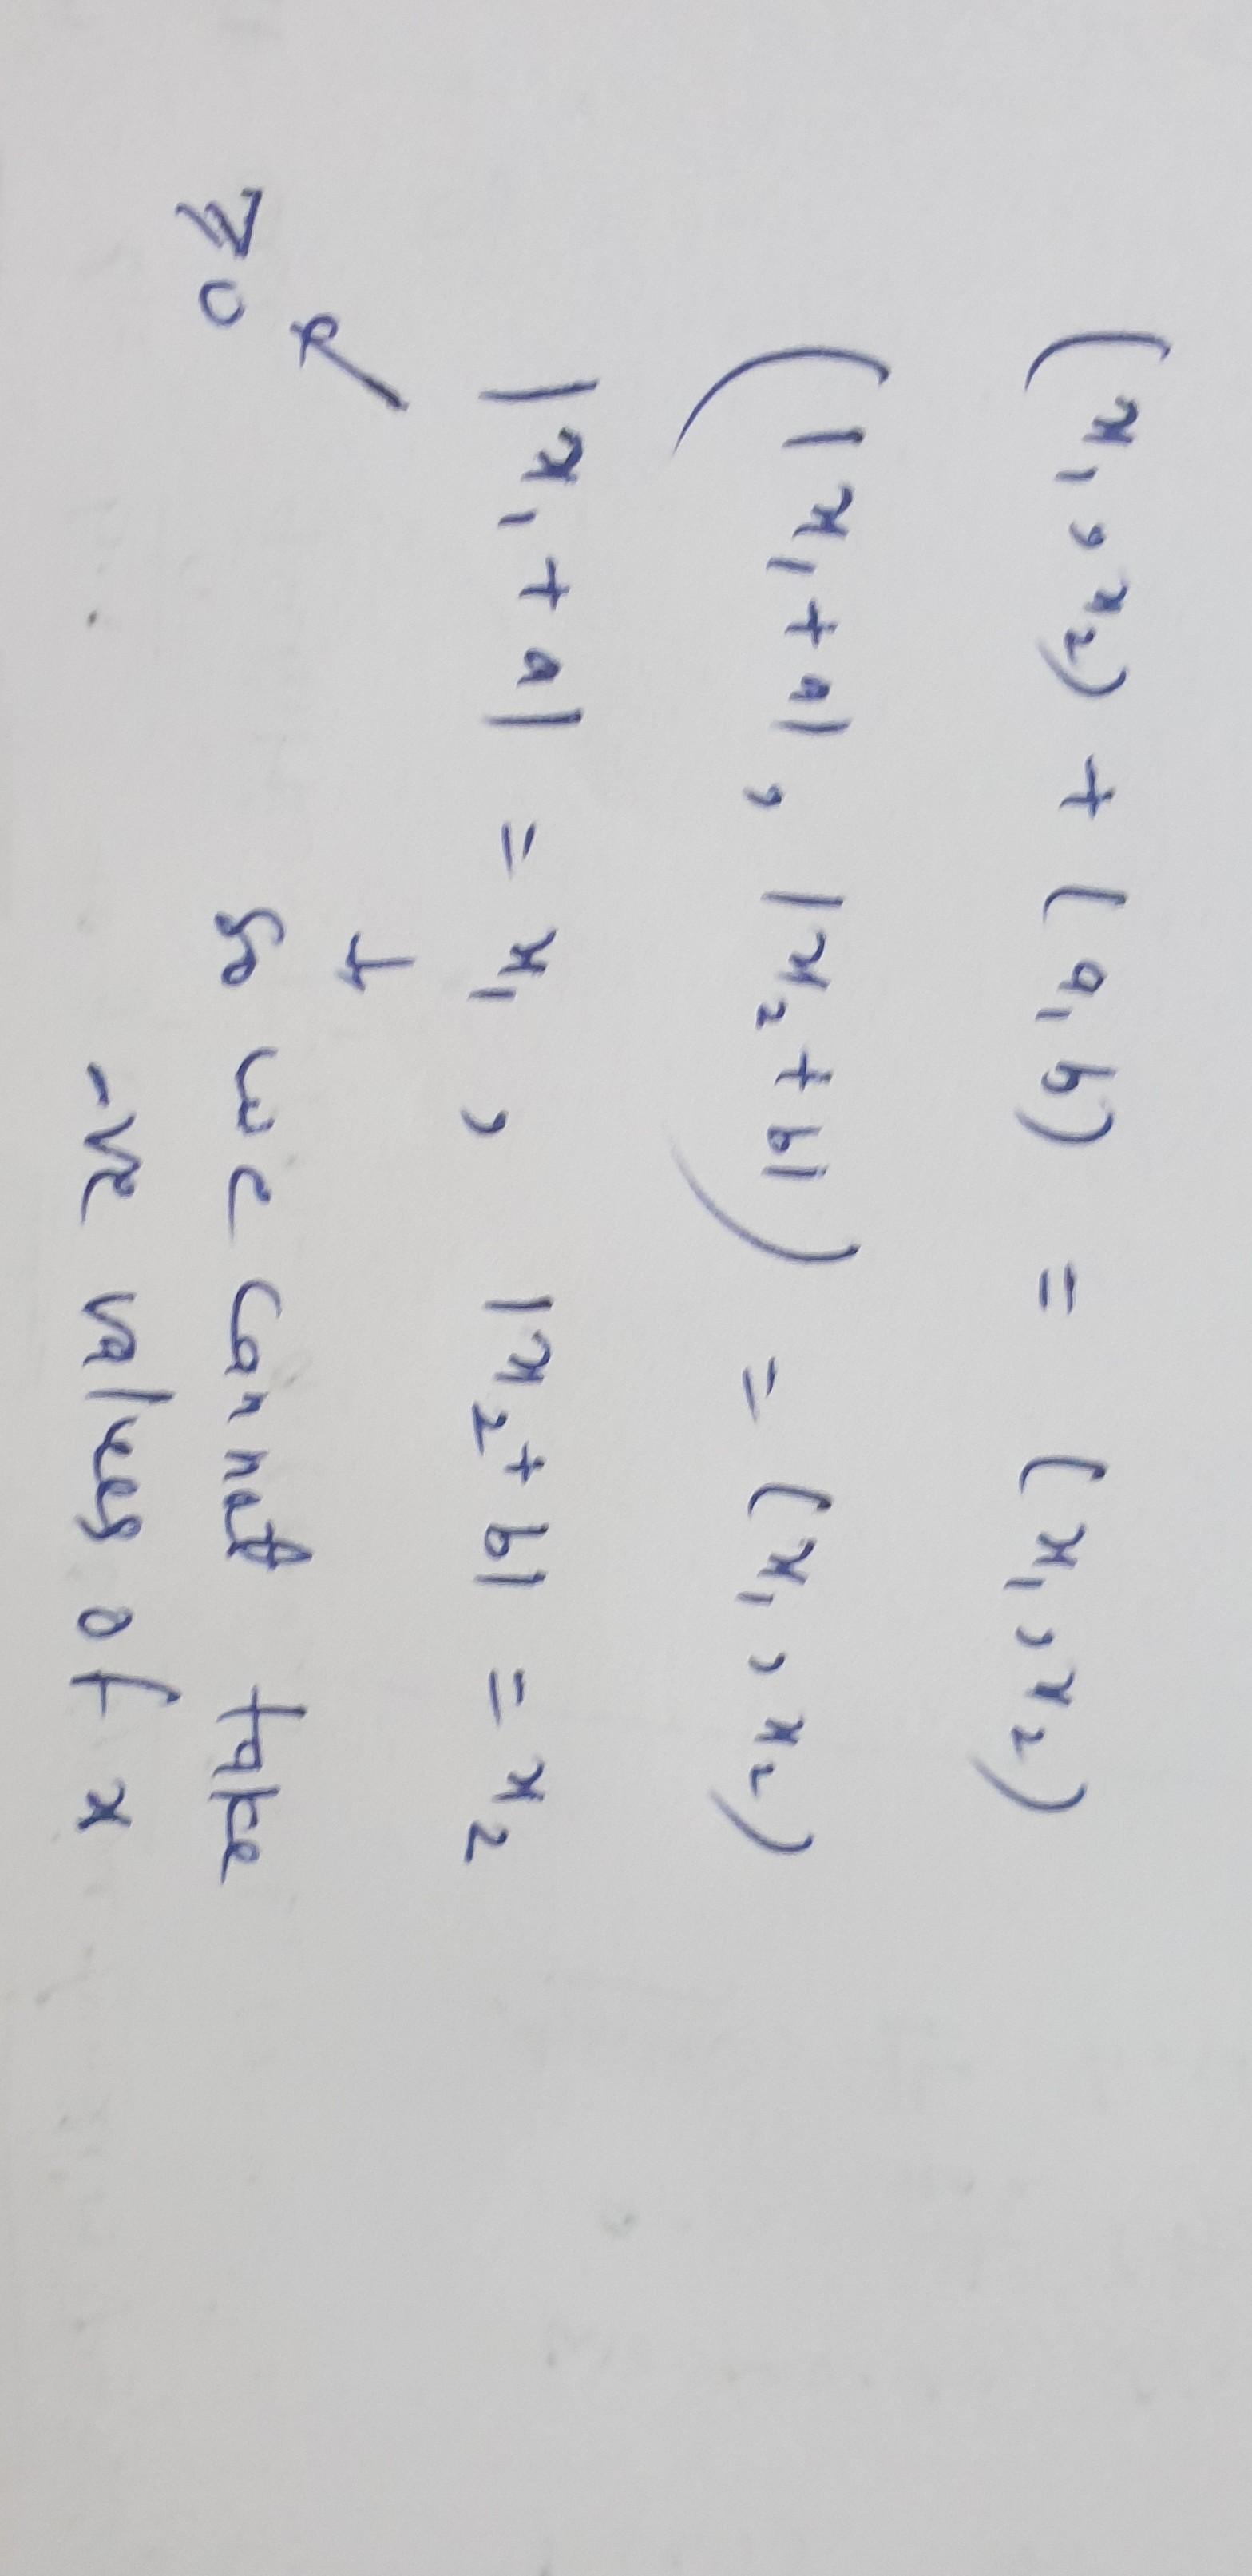 (x₁, x₂) + (a, b) = (x₁, x₂)
(|x₁ + a|, |x₂ + b|) = (x₁, x₂)
|x₁ + a| = x₁, |x₂ + b| = x₂
≥ 0 so we cannot take
-ve values of x